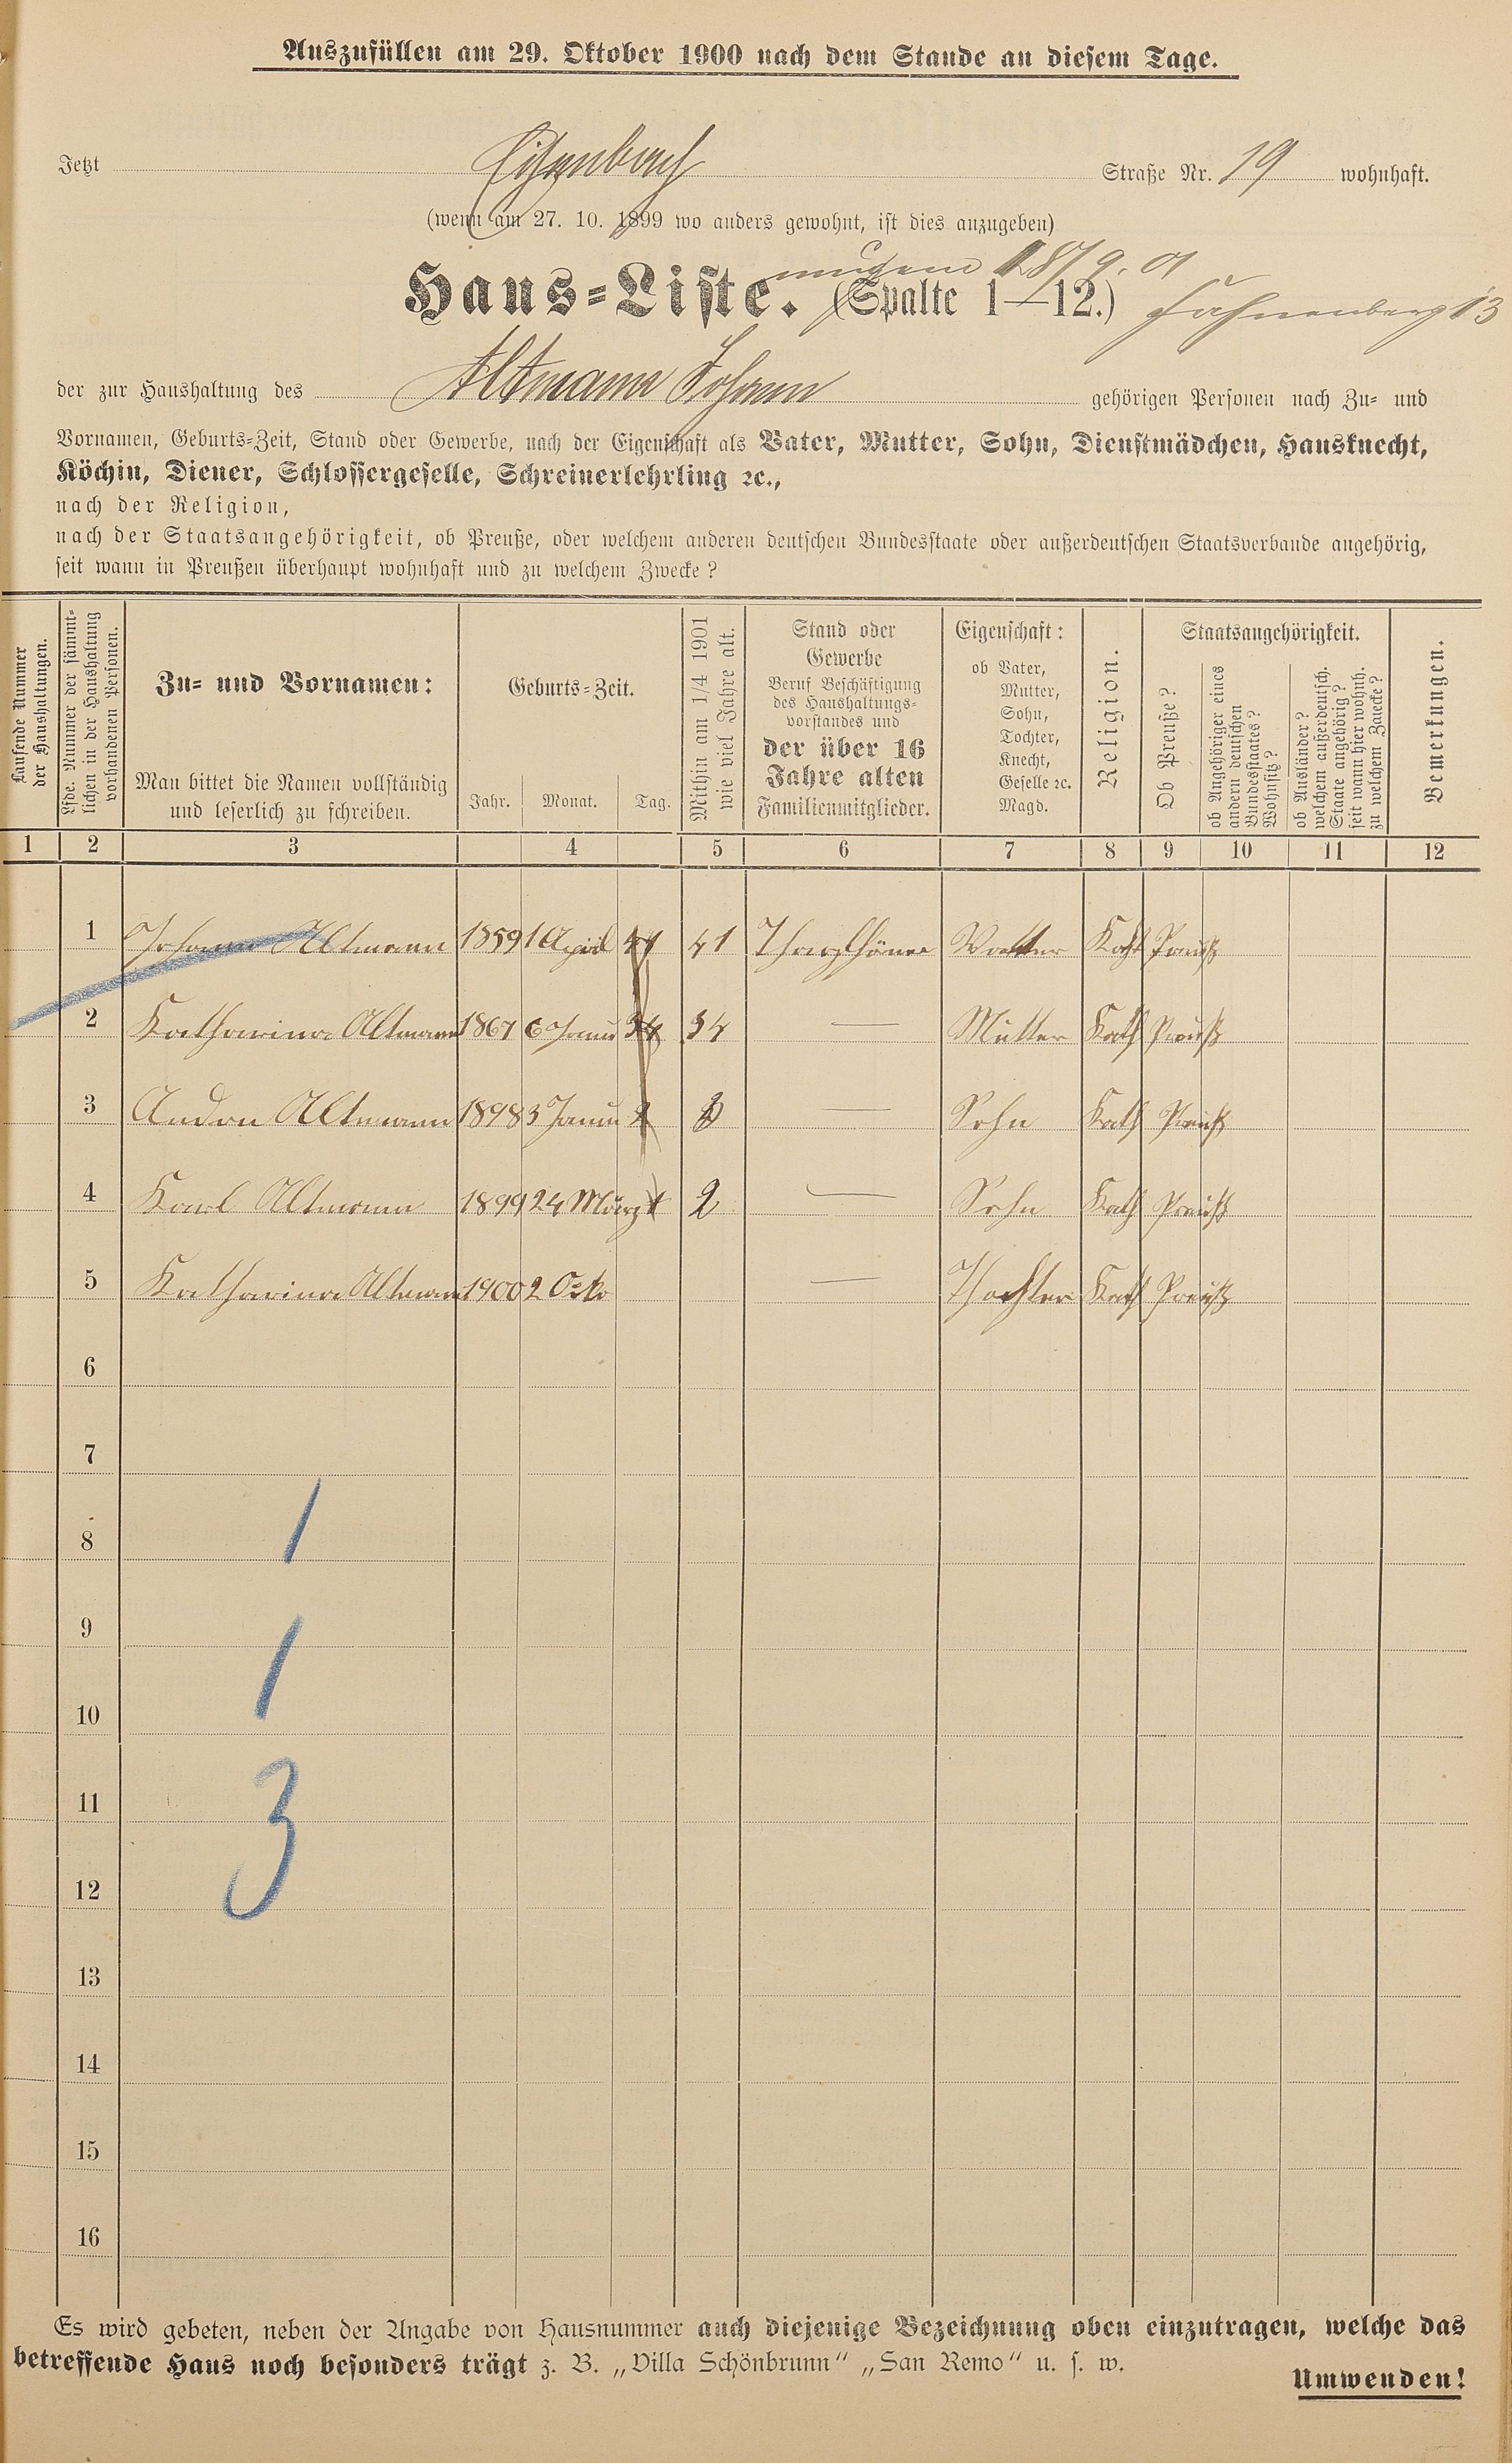 Auszufüllen am 29. Oktober 1900 nach dem Stande an diesem Tage.
Jetzt Straße Nr. 19 wohnhaft.
(wenn am 27. 10. 1899 wo anders gewohnt, ist dies anzugeben)
Haus-Liste. (Spalte 1—12.)
der zur Haushaltung des Altmann Johann gehörigen Personen nach Zu- und
Vornamen, Geburts-Zeit, Stand oder Gewerbe, nach der Eigenschaft als Vater, Mutter, Sohn, Dienstmädchen, Hausknecht,
Köchin, Diener, Schlossergeselle, Schreinerlehrling ꝛc.,
nach der Religion,
nach der Staatsangehörigkeit, ob Preuße, oder welchem anderen deutschen Bundesstaate oder außerdeutschen Staatsverbande angehörig,
seit wann in Preußen überhaupt wohnhaft und zu welchem Zwecke?
Laufende Nummer
der Haushaltungen.
Lfde. Nummer der sämmt-
lichen in der Haushaltung
vorhandenen Personen.
Zu- und Vornamen:
Man bittet die Namen vollständig
und leserlich zu schreiben.
Geburts-Zeit.
Jahr. Monat. Tag.
Mithin am 1/4 1901
wie viel Jahre alt.
Stand oder
Gewerbe
Beruf Beschäftigung
des Haushaltungs-
vorstandes und
der über 16
Jahre alten
Familienmitglieder.
Eigenschaft:
ob Vater,
Mutter,
Sohn,
Tochter,
Knecht,
Geselle ꝛc.
Magd.
Religion.
Staatsangehörigkeit.
Ob Preuße?
ob Angehöriger eines
andern deutschen
Bundesstaates?
Wohnsitz?
ob Ausländer?
welchem außerdeutsch.
Staate angehörig?
seit wann hier wohnh.
zu welchem Zwecke?
Bemerkungen.
1 2 3 4 5 6 7 8 9 10 11 12
1 Johann Altmann 1859 1 April 41 41 Vatter Kath Preuß
2 Katharina Altmann 1867 6 Janu 34 34 — Mutter Kath Preuß
3 Andon Altmann 1898 3 Janu — Sohn Kath Preuß
4 Karl Altmann 1899 24 März 2 — Sohn Kath Preuß
5 Katharina Altmann 1900 2 — Thochter Kath Preuß
6
7
8 1
9
10 1
11
12 3
13
14
15
16
Es wird gebeten, neben der Angabe von Hausnummer auch diejenige Bezeichnung oben einzutragen, welche das
betreffende Haus noch besonders trägt z. B. „Villa Schönbrunn" „San Remo" u. s. w.
Umwenden!